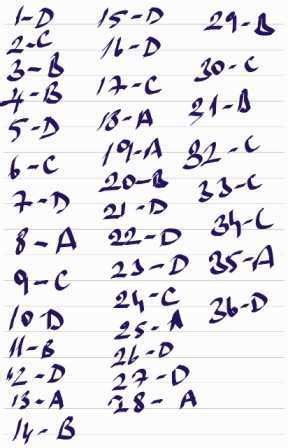 1-D
2-C
3-B
4-B
5-D
6-C
7-D
8-A
9-C
10-D
11-B
12-D
13-A
14-B
15-D
16-D
17-C
18-A
19-A
20-B
21-D
22-D
23-D
24-C
25-A
26-D
27-D
28-A
29-B
30-C
31-B
32-C
33-C
34-C
35-A
36-D